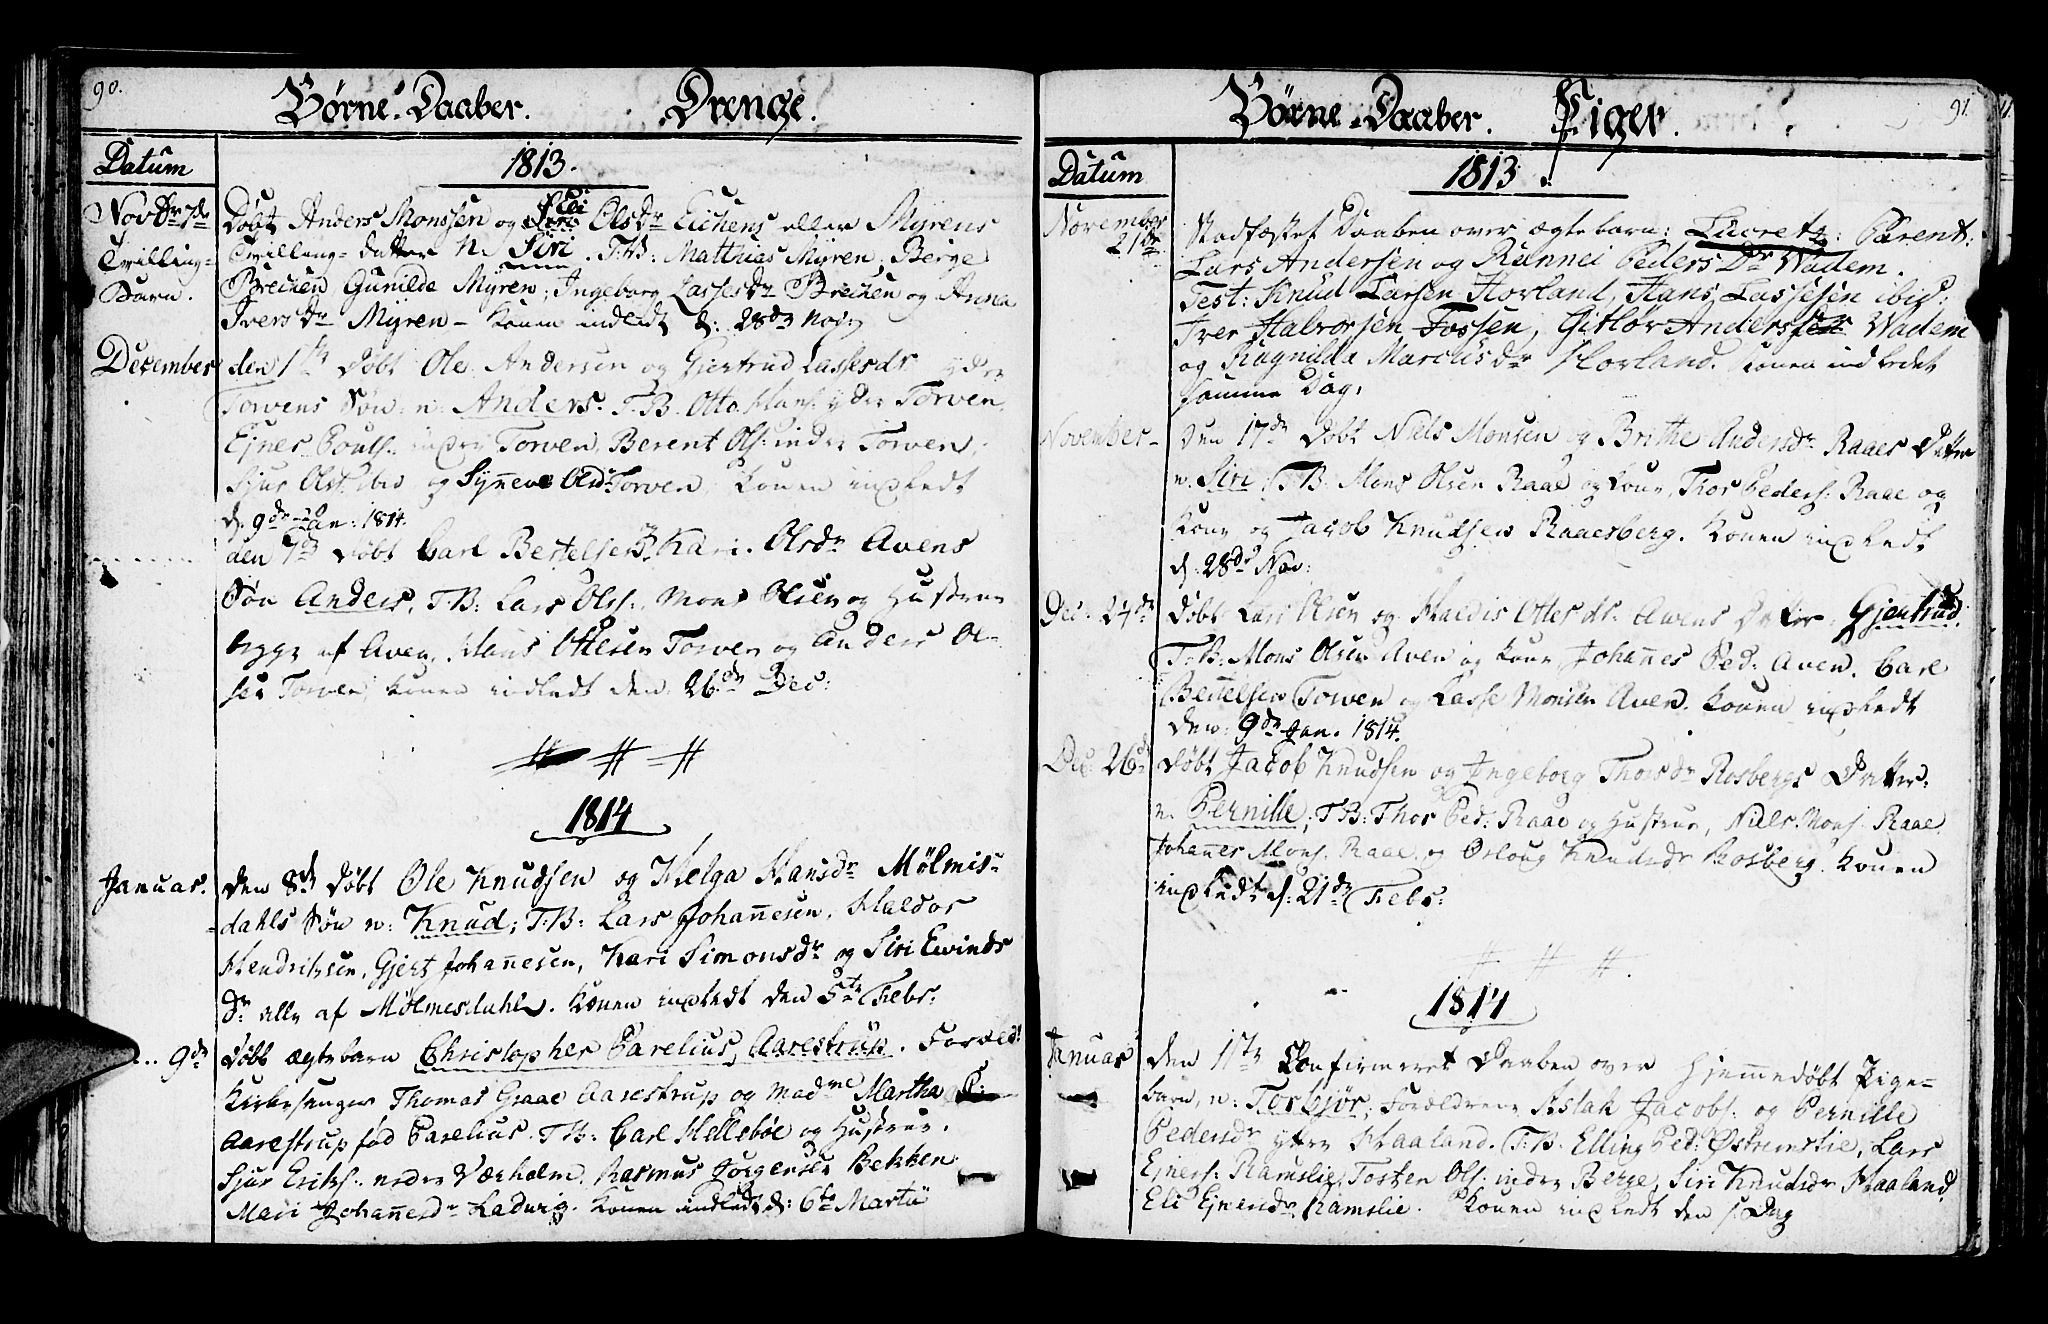 90.
Börne-Daaber. Drenge.
Datum
1813.
Novbr 7de Döbt Anders Monssen og Eli Olsdr Eichens eller Myrens
Tvilling- Tvilling-datter n. Siri. T.B: Matthias Myren, Berge
Barn. Brechen Gunilde Myren; Ingeborg Lassesdr Brechen og Anna
Iversdr Myren - Konen indledt d: 28de Nov:
December den 1ste Döbt Ole Andersen og Giertrud Lassesdr ydre
Torvens Sön n: Anders. T.B. Otto Hans: ydre Torven,
Ejner Pouls: indre Torven, Berent Ols: indre Torven,
Sjur Ols: ibid og Synneve Olsdr Torven; Konen indledt
d. 9de Jan: 1814.
den 7de Döbt Carl Bertelsens Kari Olsdr Avens
Sön Anders, T.B: Lars Olss:, Mons Olsen og Hustrue
begge af Aven, Hans Ottesen Torven og Anders Ol-
sen Torven, konen indledt den 26de Dec:
1814
Januar. den 8de Döbt Ole Knudsen og Helga Hansdr Mölmis-
dahls Sön n: Knud; T:B: Lars Johannesen, Haldor
Hendriksen, Gjert Johannesen, Kari Simonsdr og Siri Ewinds
dr alle af Mölmesdahl. Konen indledt den 5te Febr:
... 9de Döbt ægtebarn Christopher Parelius Aarestrup. Foræld:
Kirkesanger Thomas Graae Aarestrup og Madme Martha
Aarestrup föd Parelius. T.B: Carl Helleböe og Hustrue.
Sjur Eriks: nedre Værholm, Rasmus Jörgensen Bekken
Mari Johannesdr Ladwig. Konen indledt d: 6te Martii
91.
Börne-Daaber. Piger.
Datum
1813.
November Stadfæstet Daaben over ægtebarn: Lucretz: Parent:
21de Lars Andersen og Rannei Peders Dr Wadem.
Test: Knud Larsen Horland, Hans Lassesen ibid:
Iver Halvorsen Fossen, Gitlör Anders Wadem
og Ragnilda Marcusdr Horland. Konen indledet
samme Dag.
November- Den 17de Döbt Niels Monsen og Brithe Andersdr Raaes Datter
n. Siri. T.B: Mons Olsen Raae og Kone, Thor Peders: Raae og
Kone og Jacob Knudsen Raaesberg. Konen indledt
d: 28de Nov:
Dec: 24de Döbt Lars Olsen og Haldis Ottesdr. Avens Datter Gjertrud.
T.B: Mons Olsen Aven og Kone Johannes Ped: Aven. Carl
Bertelsen Torven og Lasse Monsen Aven. Konen indledt
den: 9de Jan. 1814.
Dec: 26de Döbt Jacob Knudsen og Ingeborg Thorsdr Rosbergs Datter
n. Pernille; T.B: Thor Ped: Raae og Hustrue, Niels Mons: Raae
Johannes Mons: Raae og Osloug Knudsdr Rosberg. Konen
indledt d: 21de Febr:
1814
Januar den 1ste Confirmeret Daaben over Hjemmedöbt Pige-
barn, n: Torbjör, Forældrene Aslak Jacobs: og Pernille
Pedersdr ytre Haaland. T.B. Elling Ped: Östremslie, Lars
Ejners: Ramslie, Tosten Ols: indre Berge, Siri Knudsdr Haaland
Eli Ejnersdr Ramslie. Konen indledt den s: Dag